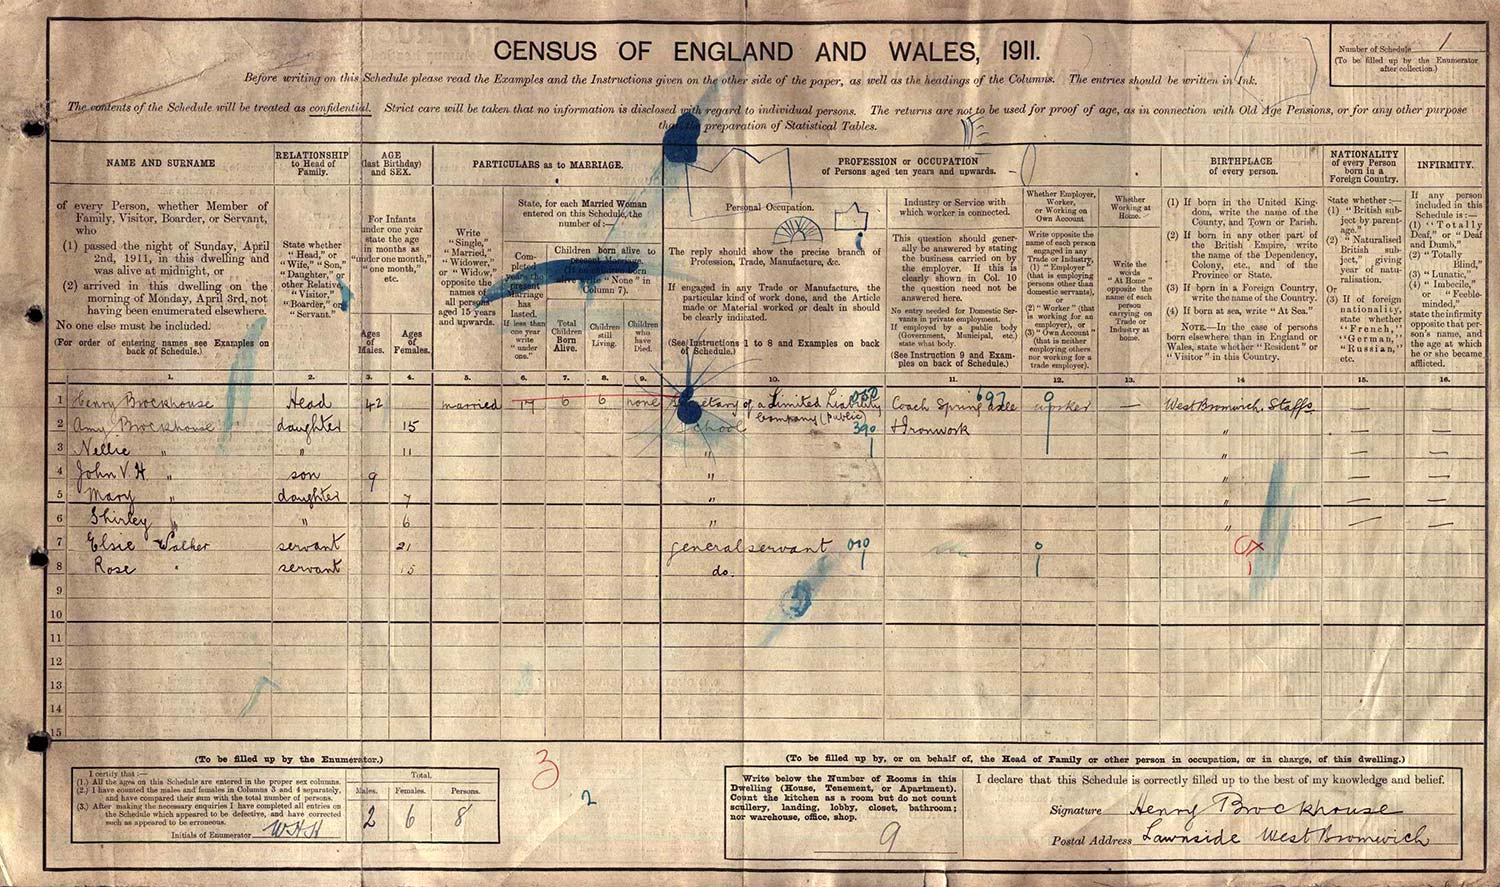 CENSUS OF ENGLAND AND WALES, 1911.
Number of Schedule 1
(To be filled up by the Enumerator
after collection.)
Before writing on this Schedule please read the Examples and the Instructions given on the other side of the paper, as well as the headings of the Columns. The entries should be written in Ink.
The contents of the Schedule will be treated as confidential. Strict care will be taken that no information is disclosed with regard to individual persons. The returns are not to be used for proof of age, as in connection with Old Age Pensions, or for any other purpose
than the preparation of Statistical Tables.
NAME AND SURNAME
of every Person, whether Member of
Family, Visitor, Boarder, or Servant,
who
(1) passed the night of Sunday, April
2nd, 1911, in this dwelling and
was alive at midnight, or
(2) arrived in this dwelling on the
morning of Monday, April 3rd, not
having been enumerated elsewhere.
No one else must be included.
(For order of entering names see Examples on
back of Schedule.)
1.
RELATIONSHIP
to Head of
Family.
State whether
"Head," or
"Wife," "Son,"
"Daughter," or
other Relative,
"Visitor,"
"Boarder," or
"Servant."
2.
AGE
(last Birthday)
and SEX.
For Infants
under one year
state the age
in months as
"under one month,"
"one month,"
etc.
Ages
of
Males.
3.
Ages
of
Females.
4.
PARTICULARS as to MARRIAGE.
Write
"Single,"
"Married,"
"Widower,"
or "Widow,"
opposite the
names of
all persons
aged 15 years
and upwards.
5.
State, for each Married Woman
entered on this Schedule, the
number of:—
Completed
years the
present
Marriage
has
lasted.
If less than
one year
write
"under
one."
6.
Children born alive to
present Marriage.
(If no children born
alive write "None" in
Column 7).
Total
Children
Born
Alive.
7.
Children
still
Living.
8.
Children
who
have
Died.
9.
PROFESSION or OCCUPATION
of Persons aged ten years and upwards.
Personal Occupation.
The reply should show the precise branch of
Profession, Trade, Manufacture, &c.
If engaged in any Trade or Manufacture, the
particular kind of work done, and the Article
made or Material worked or dealt in should
be clearly indicated.
(See Instructions 1 to 8 and Examples on back
of Schedule.)
10.
Industry or Service with
which worker is connected.
This question should gener-
ally be answered by stating
the business carried on by
the employer. If this is
clearly shown in Col. 10
the question need not be
answered here.
No entry needed for Domestic Ser-
vants in private employment.
If employed by a public body
(Government, Municipal, etc.)
state what body.
(See Instruction 9 and Exam-
ples on back of Schedule.)
11.
Whether Employer,
Worker,
or Working on
Own Account.
Write opposite the
name of each person
engaged in any
Trade or Industry,
(1) "Employer"
(that is employing
persons other than
domestic servants),
or
(2) "Worker" (that
is working for an
employer), or
(3) "Own Account"
(that is neither
employing others
nor working for a
trade employer).
12.
Whether
Working at
Home.
Write the
words
"At Home"
opposite the
name of each
person
carrying on
Trade or
Industry at
home.
13.
BIRTHPLACE
of every person.
(1) If born in the United King-
dom, write the name of the
County, and Town or Parish.
(2) If born in any other part of
the British Empire, write
the name of the Dependency,
Colony, etc., and of the
Province or State.
(3) If born in a Foreign Country,
write the name of the Country.
(4) If born at sea, write "At Sea."
NOTE.—In the case of persons
born elsewhere than in England or
Wales, state whether "Resident" or
"Visitor" in this Country.
14
NATIONALITY
of every Person
born in a
Foreign Country.
State whether:—
(1) "British sub-
ject by parent-
age."
(2) "Naturalised
British sub-
ject," giving
year of natu-
ralisation.
Or
(3) If of foreign
nationality,
state whether
"French,"
"German,"
"Russian,"
etc.
15.
INFIRMITY.
If any person
included in this
Schedule is:—
(1) "Totally
Deaf," or "Deaf
and Dumb,"
(2) "Totally
Blind,"
(3) "Lunatic,"
(4) "Imbecile,"
or "Feeble-
minded,"
state the infirmity
opposite that per-
son's name, and
the age at which
he or she became
afflicted.
16.
1 Henry Brockhouse Head 42 married 17 6 6 none Secretary of a Limited Liability 050 Coach Spring axle 697 worker 0 — West Bromwich, Staffs — —
Company (Public)
2 Amy Brockhouse daughter 15 School 390 & Ironwork 1 " — —
3 Nellie " " 11 " 1 " — —
4 John V. H " son 9 " " — —
5 Mary " daughter 7 " " — —
6 Shirley " " 6 " " — —
7 Elsie Walker servant 21 general servant 010 0
8 Rose " servant 15 do. 1 1
9
10
11
12
13
14
15
(To be filled up by the Enumerator.)
I certify that:—
(1.) All the ages on this Schedule are entered in the proper sex columns.
(2.) I have counted the males and females in Columns 3 and 4 separately,
and have compared their sum with the total number of persons.
(3.) After making the necessary enquiries I have completed all entries on
the Schedule which appeared to be defective, and have corrected
such as appeared to be erroneous.
Initials of Enumerator WHH
Total.
Males. Females. Persons.
2 6 8
3
2
(To be filled up by, or on behalf of, the Head of Family or other person in occupation, or in charge, of this dwelling.)
Write below the Number of Rooms in this
Dwelling (House, Tenement, or Apartment).
Count the kitchen as a room but do not count
scullery, landing, lobby, closet, bathroom;
nor warehouse, office, shop.
9
I declare that this Schedule is correctly filled up to the best of my knowledge and belief.
Signature Henry Brockhouse
Postal Address Lawnside West Bromwich